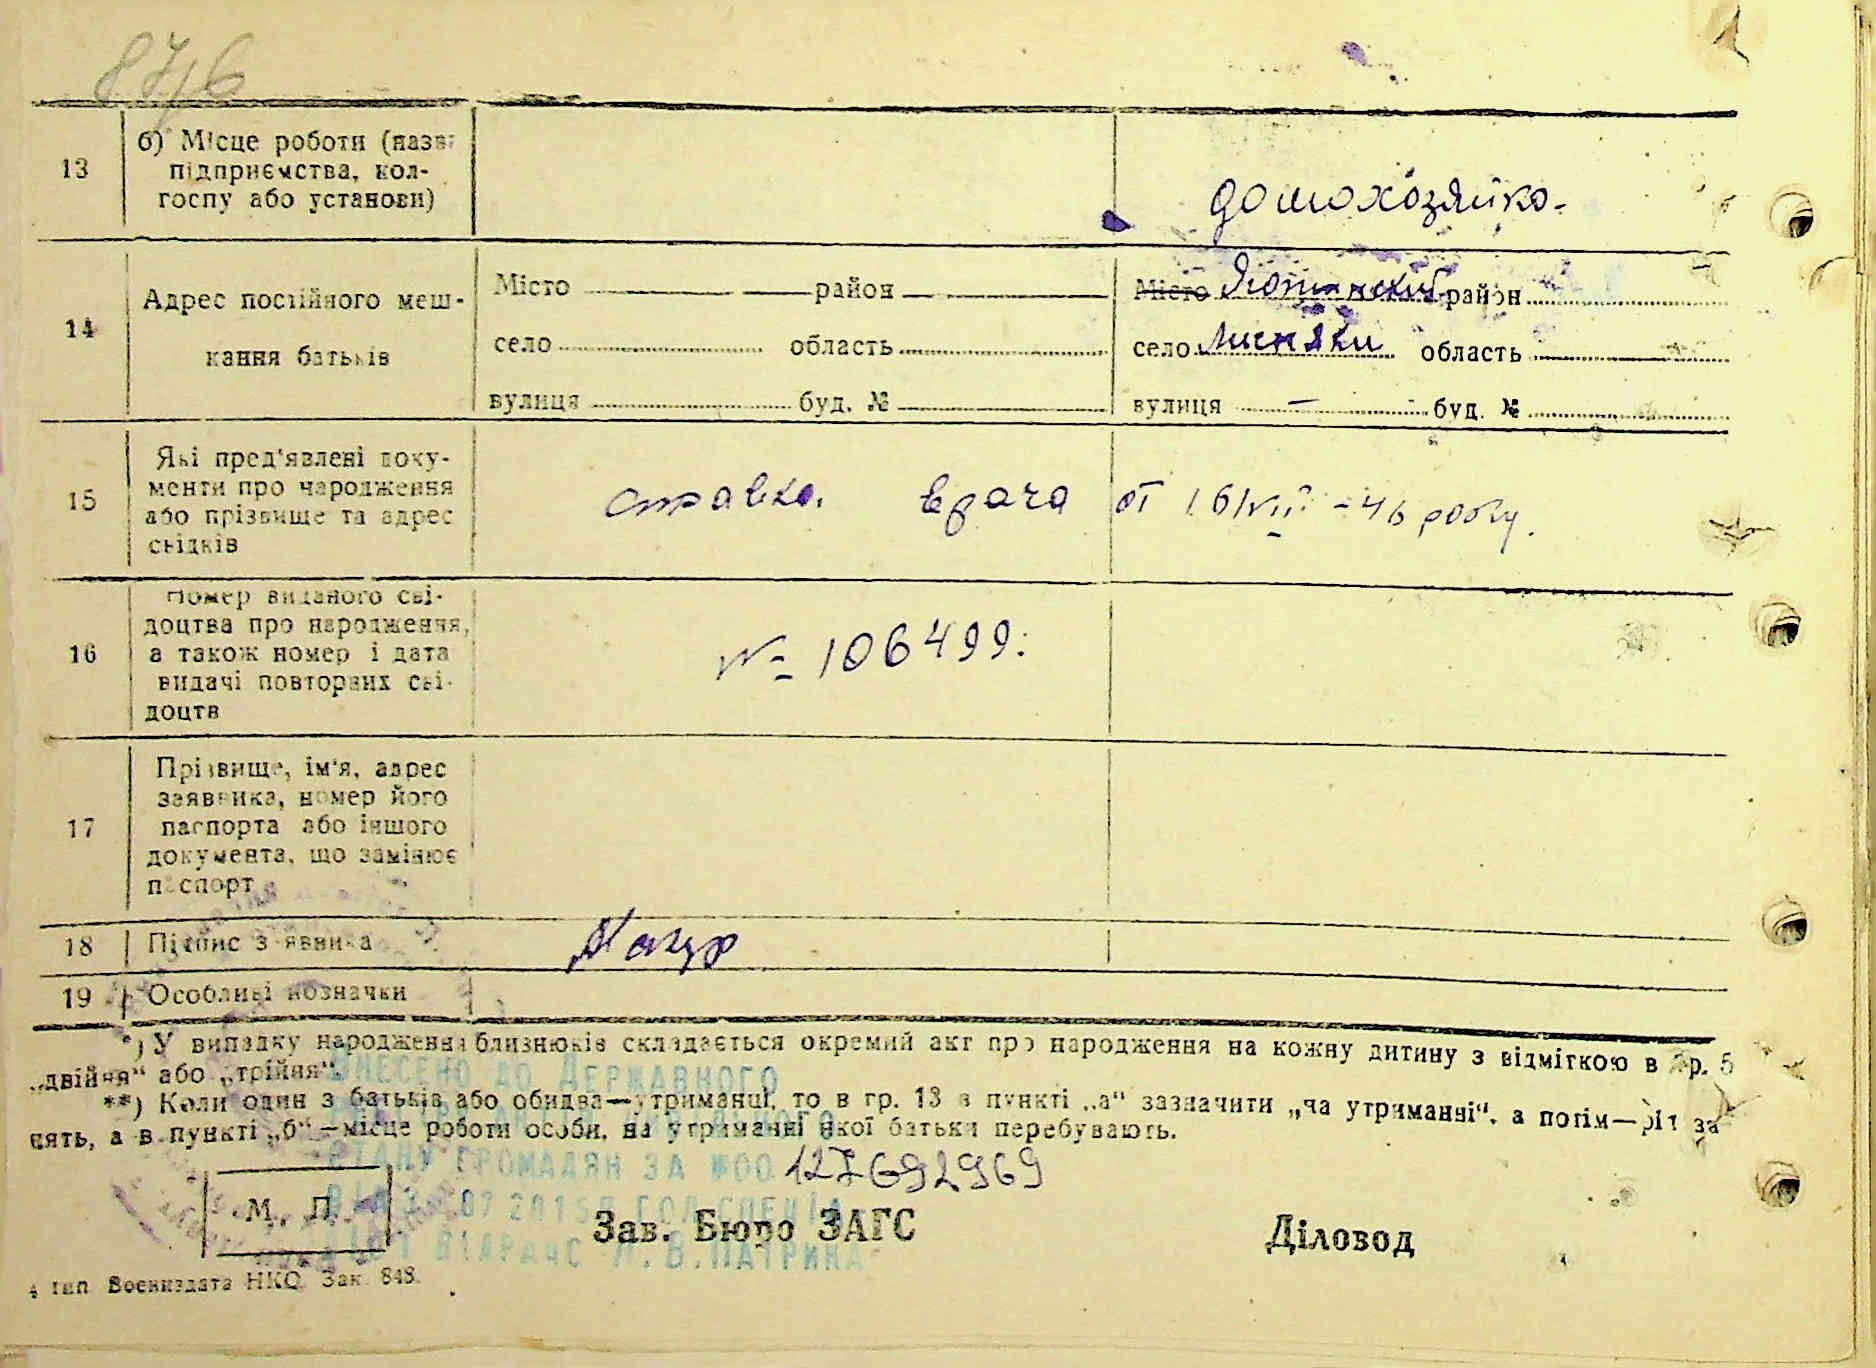 87/6
13
б) Місце роботи (назва
підприємства, кол-
госпу або установи)
домохозяйка.
14
Адрес постійного меш-
кання батьків
Місто район
село область
вулиця буд. №
Місто Яготинский район
село Лисняки область
вулиця — буд. №
15
Які пред'явлені доку-
менти про народження
або прізвище та адрес
свідків
справка врача от 16/VII - 46 року.
16
Номер виданого сві-
доцтва про народження,
а також номер і дата
видачі повторних сві-
доцтв
№ 106499.
17
Прізвище, ім'я, адрес
заявника, номер його
паспорта або іншого
документа, що замінює
паспорт
18
Підпис заявника
Мазур
19
Особливі позначки
*) У випадку народження близнюків складається окремий акт про народження на кожну дитину з відміткою в гр. 5
„двійня" або „трійня".
**) Коли один з батьків або обидва—утриманці, то в гр. 13 в пункті „а" зазначити „на утриманні", а потім—рід за
нять, а в пункті „б"—місце роботи особи, на утриманні якої батьки перебувають.
ВНЕСЕНО ДО ДЕРЖАВНОГО
СТАНУ ГРОМАДЯН ЗА №00 127692969
07 2015
М. П.
Зав. Бюро ЗАГС
Діловод
4 тип. Воениздата НКО. Зак. 848.